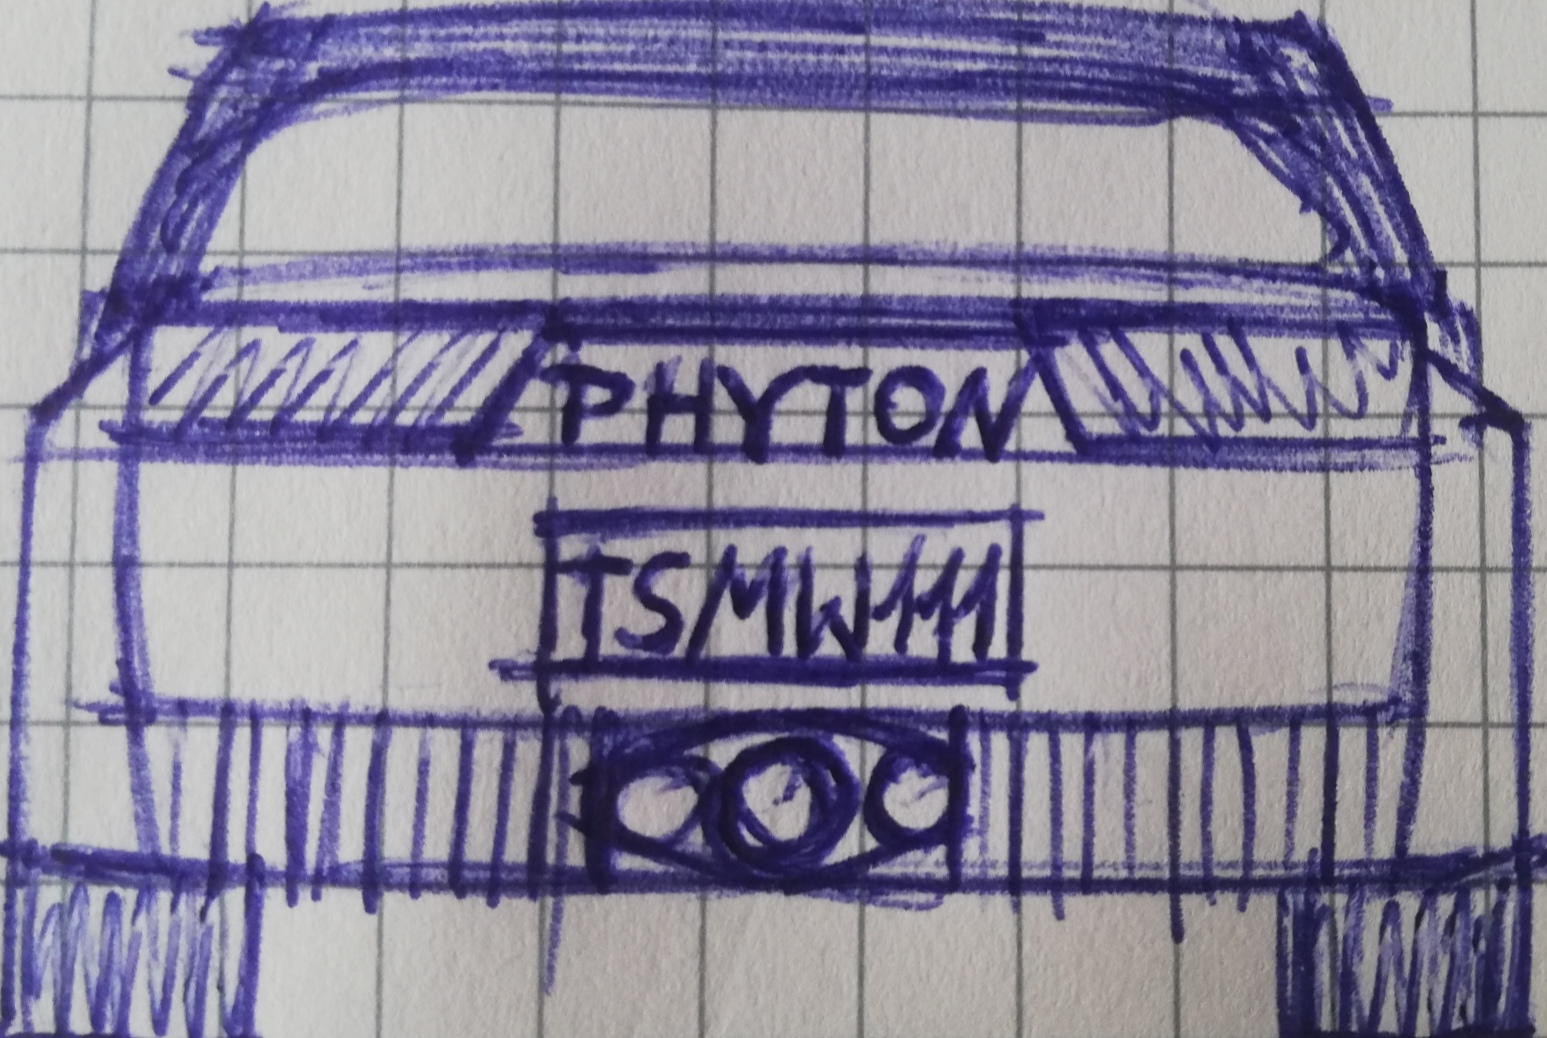 PHYTON
TSMW111